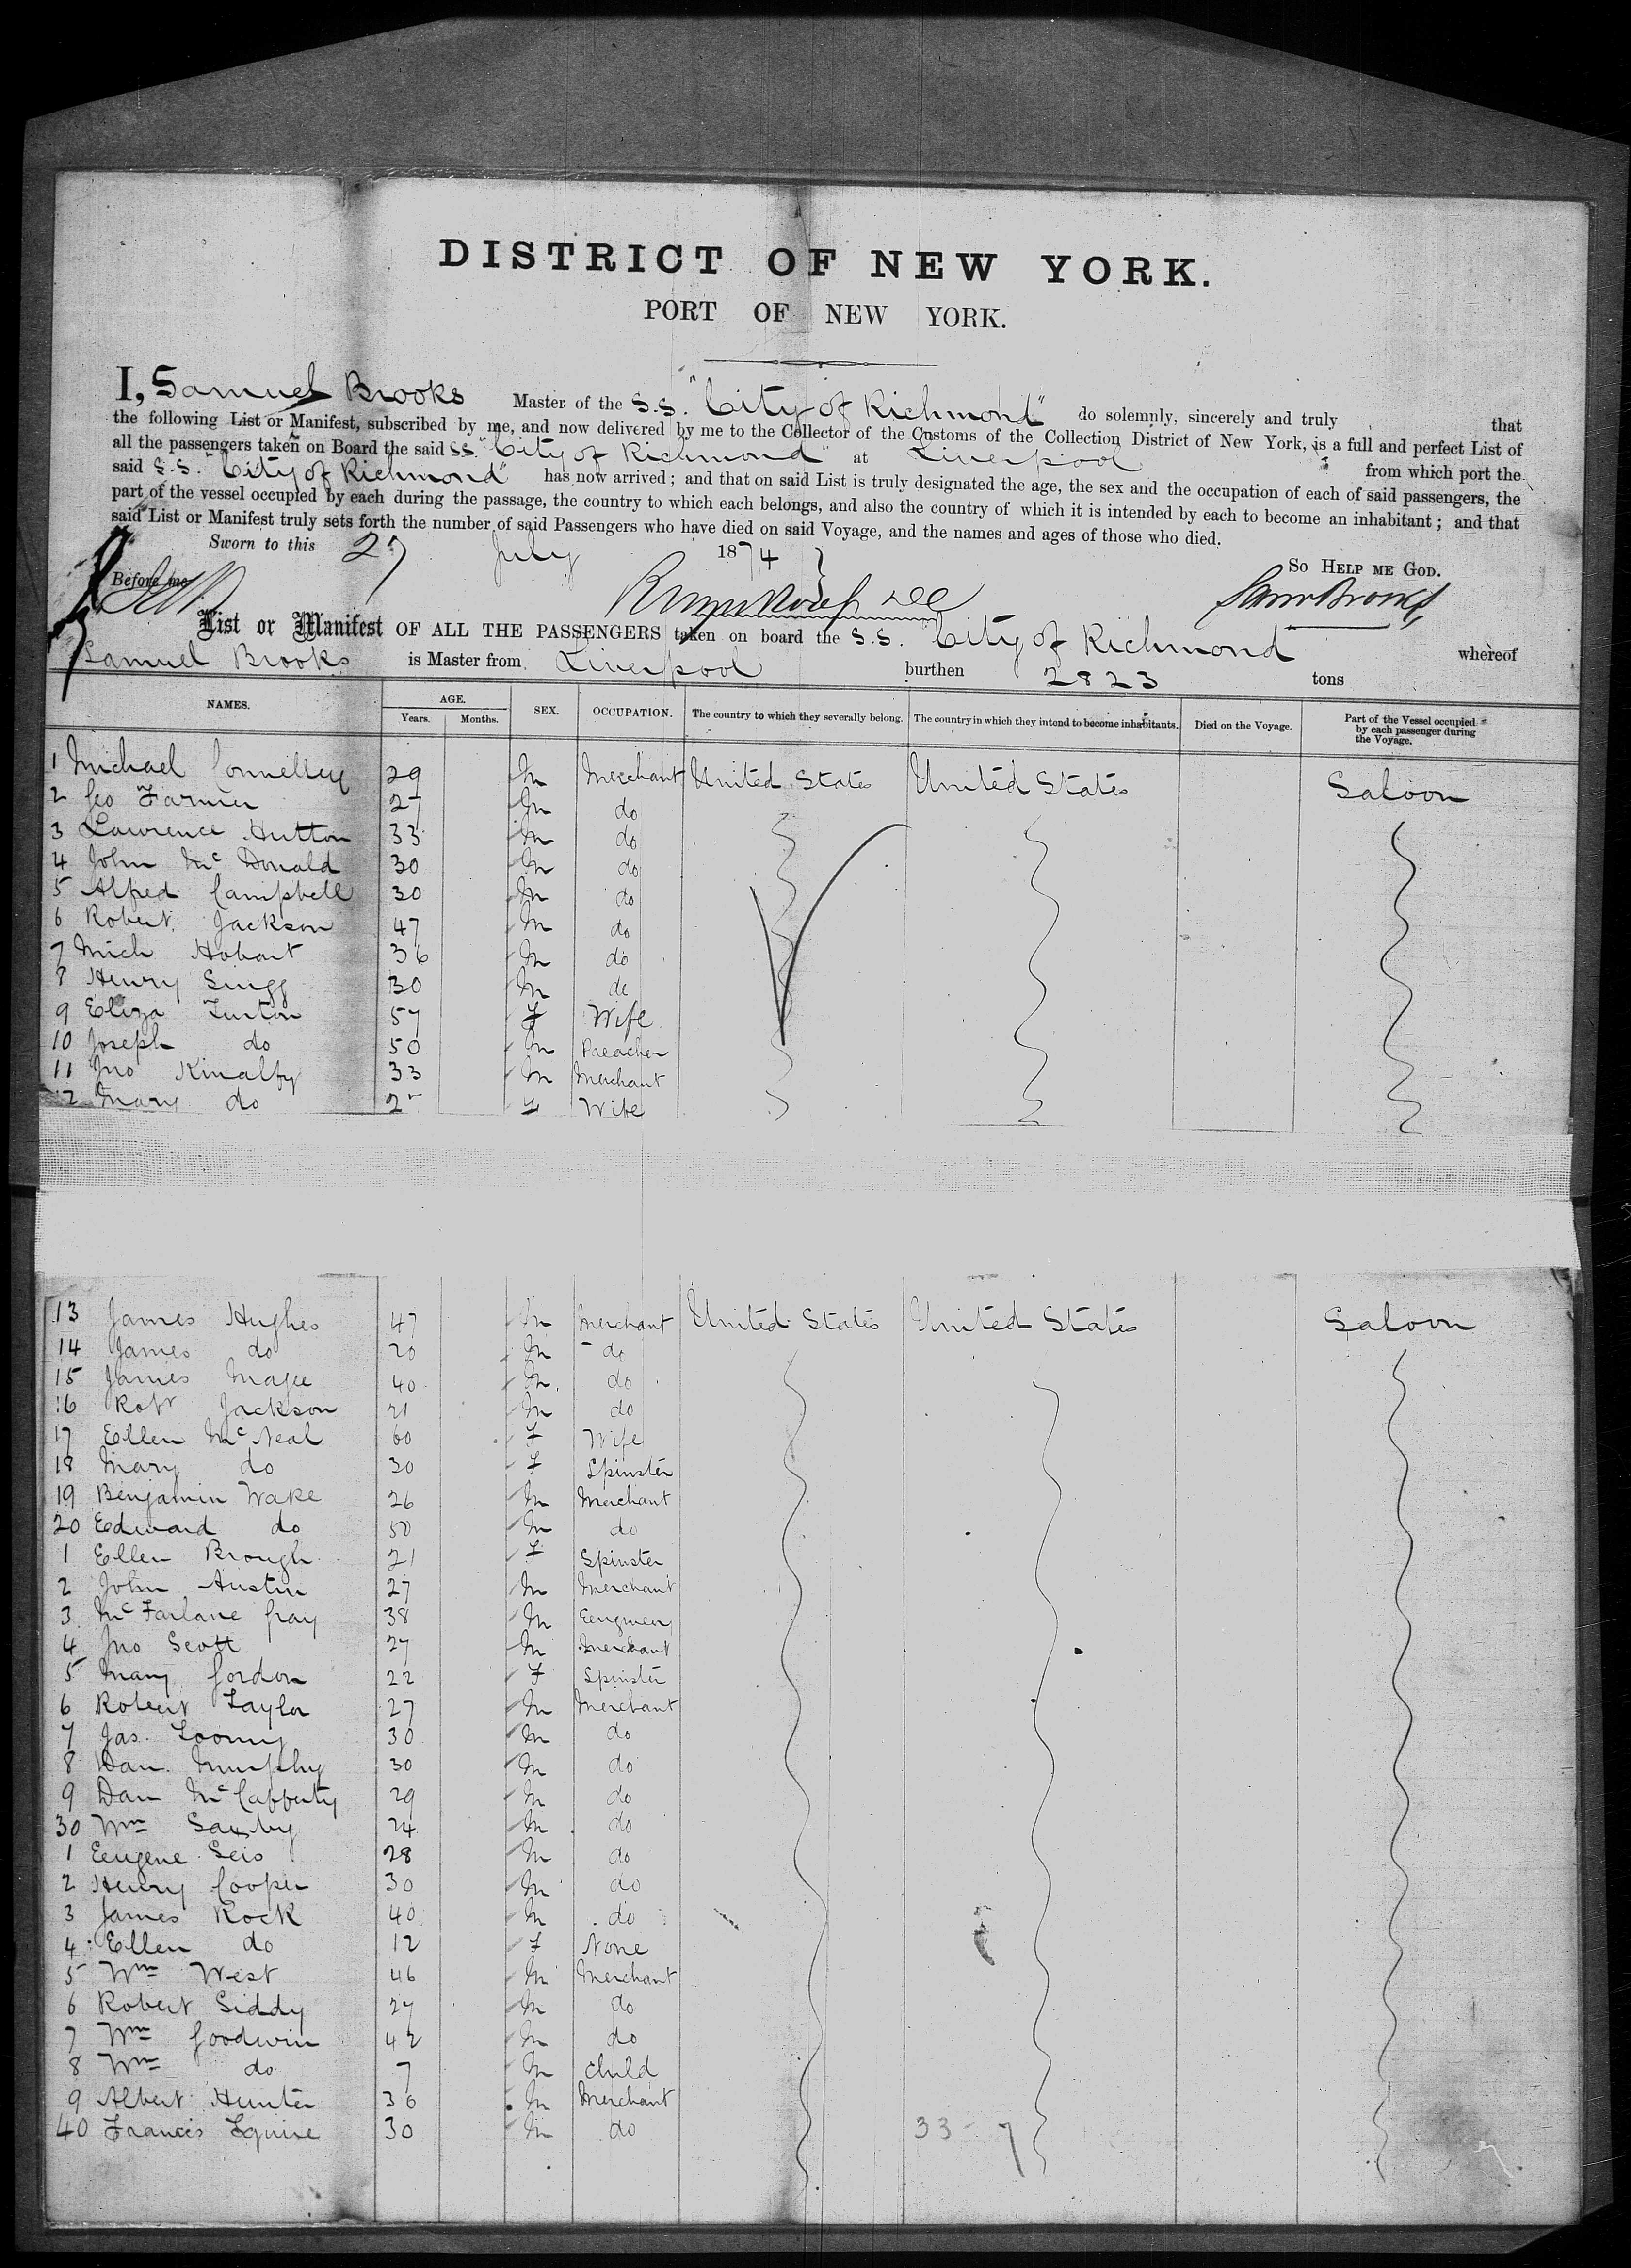 DISTRICT OF NEW YORK.
PORT OF NEW YORK.
I, Samuel Brooks Master of the S.S. "City of Richmond" do solemnly, sincerely and truly that
the following List or Manifest, subscribed by me, and now delivered by me to the Collector of the Customs of the Collection District of New York, is a full and perfect List of
all the passengers taken on Board the said SS. "City of Richmond" at Liverpool from which port the
said S.S. "City of Richmond" has now arrived; and that on said List is truly designated the age, the sex and the occupation of each of said passengers, the
part of the vessel occupied by each during the passage, the country to which each belongs, and also the country of which it is intended by each to become an inhabitant; and that
said List or Manifest truly sets forth the number of said Passengers who have died on said Voyage, and the names and ages of those who died.
Sworn to this 27 July 1874
So Help me God.
Before me
Sam Brooks
List or Manifest OF ALL THE PASSENGERS taken on board the S.S. "City of Richmond whereof
Samuel Brooks is Master from Liverpool burthen 2823 tons
NAMES. AGE. SEX. OCCUPATION. The country to which they severally belong. The country in which they intend to become inhabitants. Died on the Voyage. Part of the Vessel occupied by each passenger during the Voyage.
Years. Months.
1 Michael Connelley 29 M Merchant United States United States Saloon
2 Geo Farmer 27 M do
3 Lawrence Hutton 33 M do
4 John McDonald 30 M do
5 Alfred Campbell 30 M do
6 Robert Jackson 47 M do
7 Mich Hobart 36 M do
8 Henry 30 M do
9 Eliza 57 F Wife
10 Joseph do 50 M Preacher
11 Jno Kinalfy 33 M Merchant
12 Mary do F Wife
13 James Hughes 47 M Merchant United States United States Saloon
14 James do 20 M do
15 James Magee 40 M do
16 Robt Jackson 21 M do
17 Ellen McNeal 60 F Wife
18 Mary do 30 F Spinster
19 Benjamin Wake 26 M Merchant
20 Edward do 50 M do
1 Ellen Brough 21 F Spinster
2 John Austin 27 M Merchant
3 McFarlane Gray 38 M Eengineer
4 Jno Scott 27 M Merchant
5 Mary Gordon 22 F Spinster
6 Robert Taylor 27 M Merchant
7 Jas. Loomy 30 M do
8 Dan. Murphy 30 M do
9 Dan McCafferty 29 M do
30 Wm Saxby 24 M do
1 Eeugene Seis 28 M do
2 Henry Cooper 30 M do
3 James Rock 40 M do
4 Ellen do 12 F None
5 Wm West 46 M Merchant
6 Robert Siddy 27 M do
7 Wm Goodwin 42 M do
8 Wm do 7 M Child
9 Albert Hunter 36 M Merchant
40 Francis Squire 30 M do
33-7